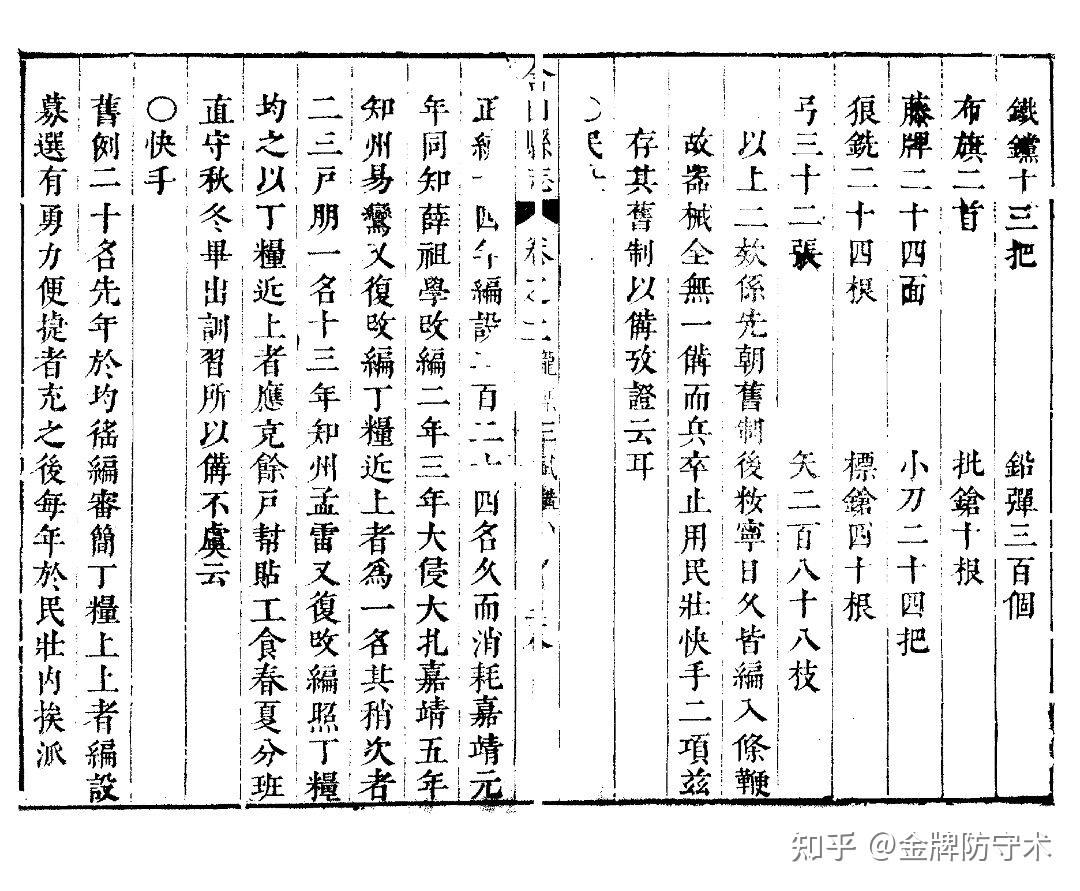 鐵钂十三把 鉛彈三百個
布旗二首 批鎗十根
藤牌二十四面 小刀二十四把
狼銑二十四根 標鎗四十根
弓三十二張 矢二百八十八枝
以上二欵係先朝舊制後敉寧日久皆編入條鞭
故器械全無一備而兵卒止用民壯快手二項茲
存其舊制以備攷證云耳
○民
縣志 卷之二
正 四年編設 百二十四名久而消耗嘉靖元
年同知薛祖學改編二年三年大侵大扎嘉靖五年
知州易鸞又復改編丁糧近上者為一名其稍次者
二三戸朋一名十三年知州孟雷又復改編照丁糧
均之以丁糧近上者應充餘戸幫貼工食春夏分班
直守秋冬畢出訓習所以備不虞云
○快手
舊例二十名先年於均徭編審簡丁糧上上者編設
募選有勇力便捷者充之後每年於民壯內挨派
知乎 @金牌防守术